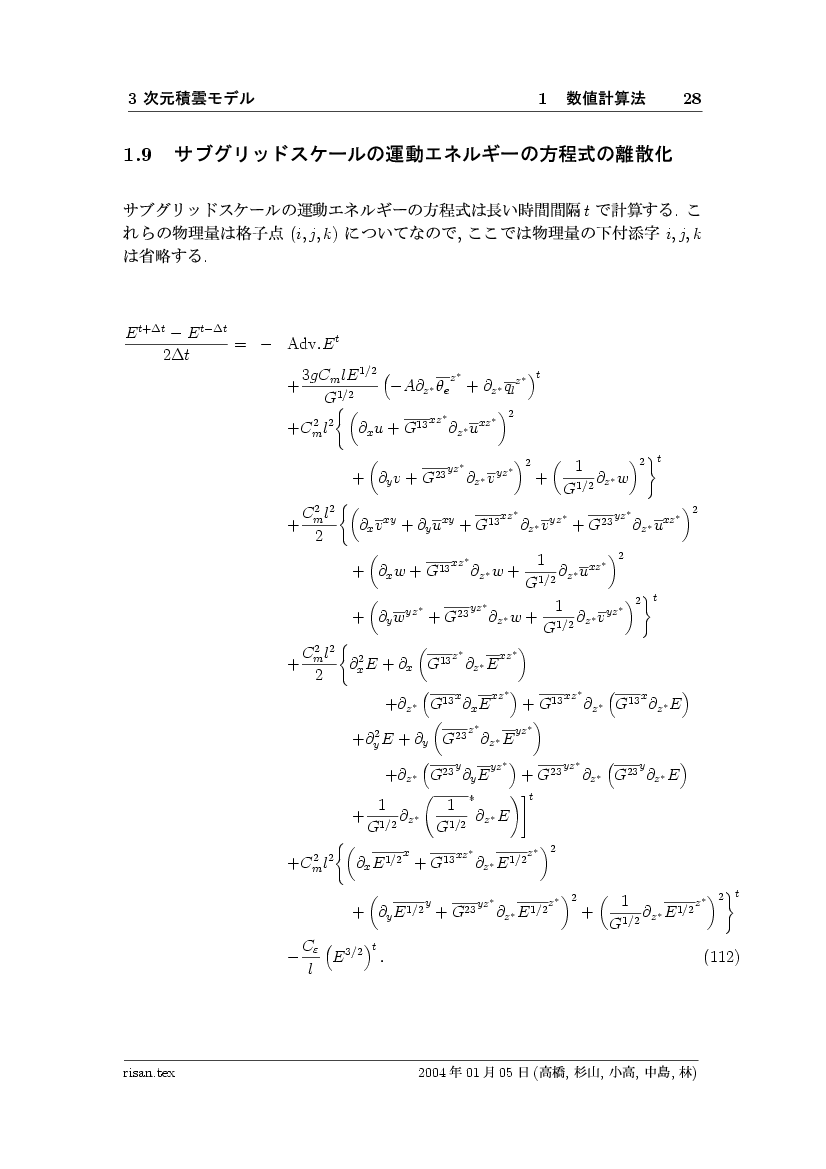 3 次元積雲モデル 1 数値計算法 28
1.9 サブグリッドスケールの運動エネルギーの方程式の離散化
サブグリッドスケールの運動エネルギーの方程式は長い時間間隔 t で計算する. こ
れらの物理量は格子点 (i, j, k) についてなので, ここでは物理量の下付添字 i, j, k
は省略する.
\frac{E^{t+\Delta t} - E^{t-\Delta t}}{2\Delta t} = - Adv.E^t
+\frac{3gC_m lE^{1/2}}{G^{1/2}} \left(-A\partial_{z^*}\overline{\theta_e}^{z^*} + \partial_{z^*}\overline{q_l}^{z^*}\right)^t
+C_m^2 l^2 \left\{ \left(\partial_x u + \overline{G^{13}}^{xz^*}\partial_{z^*}\overline{u}^{xz^*}\right)^2
+ \left(\partial_y v + \overline{G^{23}}^{yz^*}\partial_{z^*}\overline{v}^{yz^*}\right)^2 + \left(\frac{1}{G^{1/2}}\partial_{z^*}w\right)^2 \right\}^t
+\frac{C_m^2 l^2}{2} \left\{ \left(\partial_x\overline{v}^{xy} + \partial_y\overline{u}^{xy} + \overline{G^{13}}^{xz^*}\partial_{z^*}\overline{v}^{yz^*} + \overline{G^{23}}^{yz^*}\partial_{z^*}\overline{u}^{xz^*}\right)^2
+ \left(\partial_x w + \overline{G^{13}}^{xz^*}\partial_{z^*}w + \frac{1}{G^{1/2}}\partial_{z^*}\overline{u}^{xz^*}\right)^2
+ \left(\partial_y\overline{w}^{yz^*} + \overline{G^{23}}^{yz^*}\partial_{z^*}w + \frac{1}{G^{1/2}}\partial_{z^*}\overline{v}^{yz^*}\right)^2 \right\}^t
+\frac{C_m^2 l^2}{2} \left\{ \partial_x^2 E + \partial_x \left(\overline{G^{13}}^{z^*}\partial_{z^*}\overline{E}^{xz^*}\right)
+\partial_{z^*} \left(\overline{G^{13}}^{x}\partial_x\overline{E}^{xz^*}\right) + \overline{G^{13}}^{xz^*}\partial_{z^*} \left(\overline{G^{13}}^{x}\partial_{z^*}E\right)
+\partial_y^2 E + \partial_y \left(\overline{G^{23}}^{z^*}\partial_{z^*}\overline{E}^{yz^*}\right)
+\partial_{z^*} \left(\overline{G^{23}}^{y}\partial_y\overline{E}^{yz^*}\right) + \overline{G^{23}}^{yz^*}\partial_{z^*} \left(\overline{G^{23}}^{y}\partial_{z^*}E\right)
+\frac{1}{G^{1/2}}\partial_{z^*} \left(\overline{\frac{1}{G^{1/2}}}^{*}\partial_{z^*}E\right) ]^t
+C_m^2 l^2 \left\{ \left(\partial_x\overline{E^{1/2}}^{x} + \overline{G^{13}}^{xz^*}\partial_{z^*}\overline{E^{1/2}}^{z^*}\right)^2
+ \left(\partial_y\overline{E^{1/2}}^{y} + \overline{G^{23}}^{yz^*}\partial_{z^*}\overline{E^{1/2}}^{z^*}\right)^2 + \left(\frac{1}{G^{1/2}}\partial_{z^*}\overline{E^{1/2}}^{z^*}\right)^2 \right\}^t
-\frac{C_\varepsilon}{l} \left(E^{3/2}\right)^t. (112)
risan.tex 2004 年 01 月 05 日 (高橋, 杉山, 小高, 中島, 林)